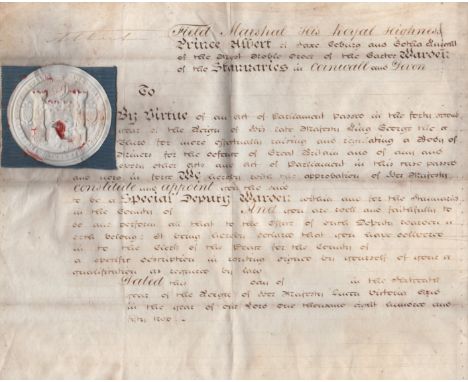 Field Marshal His Royal Highness
Prince Albert of Saxe Coburg and Gotha Knight
of the Most Noble Order of the Garter Warden
of the Stannaries in Cornwall and Devon
To
By Virtue of an act of Parliament passed in the forty second
year of the Reign of His late Majesty King George the 3
Third for more effectually raising and regulating a Body of
Miners for the defence of Great Britain and of any and
every other acts and act of Parliament in this case passed
and now in force We hereby with the approbation of Her Majesty
constitute and appoint you the said
to be a Special Deputy Warden within and for the Stannaries
in the County of And you are well and faithfully to
be and perform all that to the Office of such Deputy Warden
doth belong it being hereby declared that you have delivered
in to the Clerk of the Peace for the County of
a specific description in writing signed by yourself of your
qualification as required by law
Dated this day of in the sixteenth
year of the Reign of Her Majesty Queen Victoria and
in the year of our Lord one thousand eight hundred and
fifty two